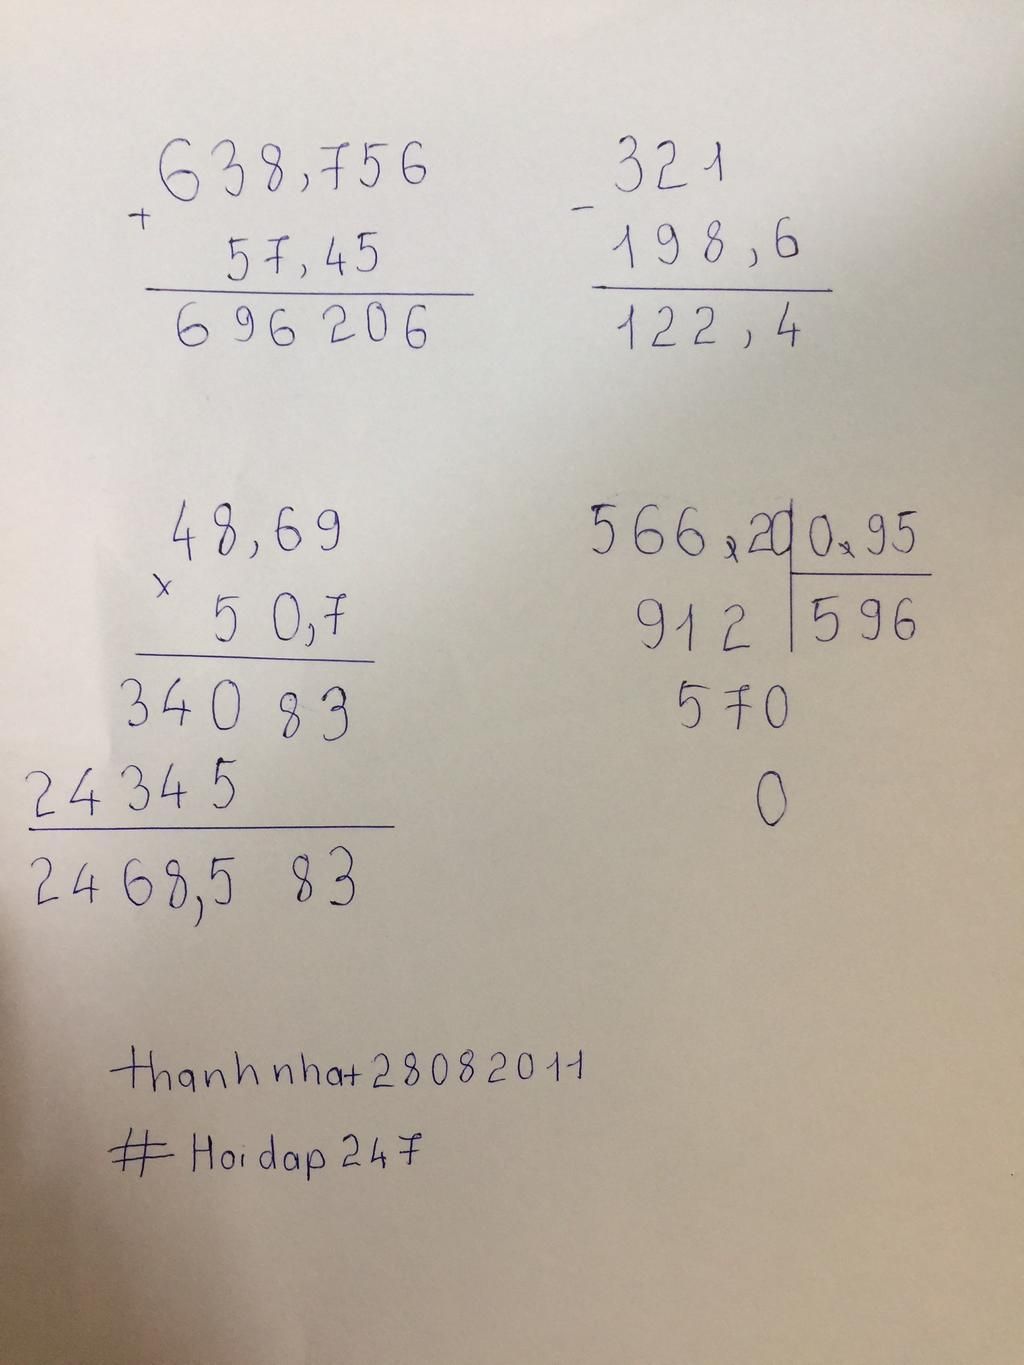 638,756
+
57,45
696206
321
-
198,6
122,4
48,69
x
50,7
34083
24345
2468,583
566,20 0,95
912 596
570
0
thanhnhat28082011
# Hoidap247